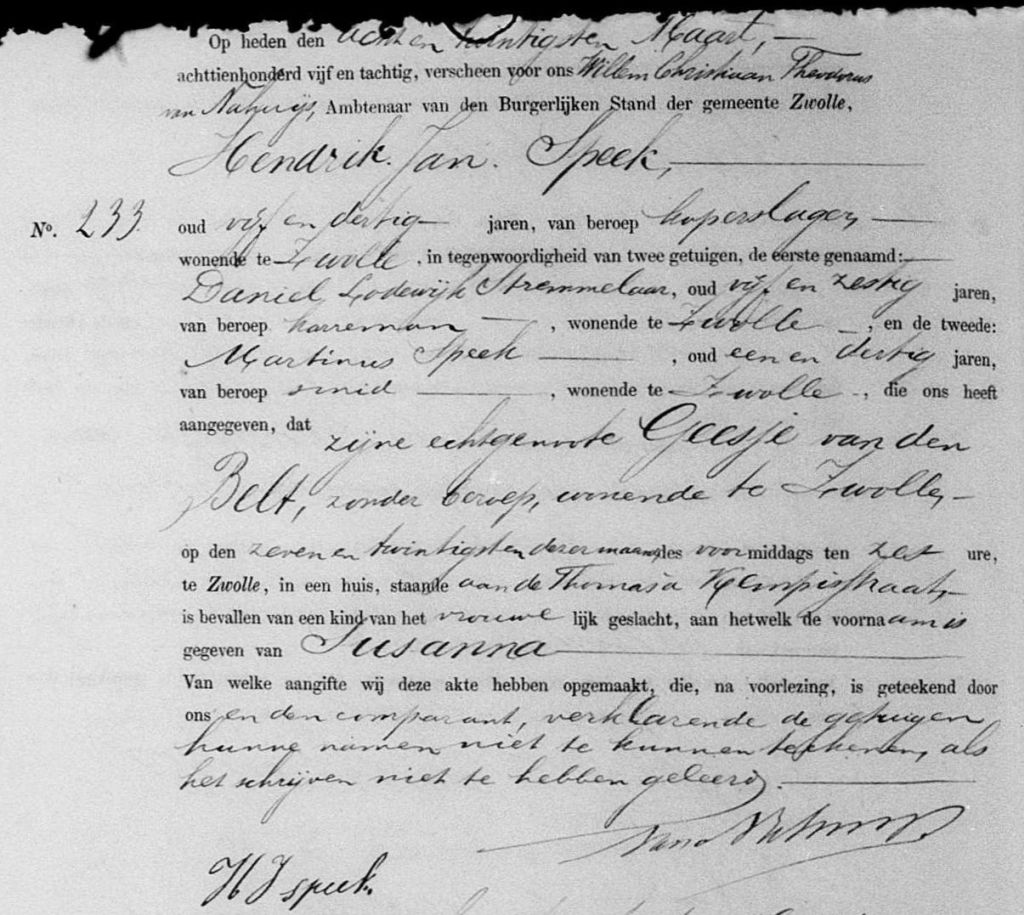 Op heden den acht en twintigsten Maart,
achttienhonderd vijf en tachtig, verscheen voor ons Willem Christiaan Theodorus
van Nahuijs, Ambtenaar van den Burgerlijken Stand der gemeente Zwolle,
Hendrik Jan Speek,
No. 233. oud vijf en dertig jaren, van beroep koperslager,
wonende te Zwolle, in tegenwoordigheid van twee getuigen, de eerste genaamd:
Daniel Lodewijk Stremmelaar, oud vijf en zestig jaren,
van beroep karreman, wonende te Zwolle, en de tweede:
Martinus Speek, oud een en dertig jaren,
van beroep smid, wonende te Zwolle, die ons heeft
aangegeven, dat zijne echtgenoote Geesje van den
Belt, zonder beroep, wonende te Zwolle,
op den zeven en twintigsten dezer maand des voormiddags ten zes ure,
te Zwolle, in een huis, staande aan de Thomas a Kempisstraat,
is bevallen van een kind van het vrouwelijk geslacht, aan hetwelk de voornaam is
gegeven van Susanna
Van welke aangifte wij deze akte hebben opgemaakt, die, na voorlezing, is geteekend door
ons en den comparant, verklarende de getuigen
hunne namen niet te kunnen teekenen, als
het schrijven niet te hebben geleerd.
Van Nahuijs
H J speek.